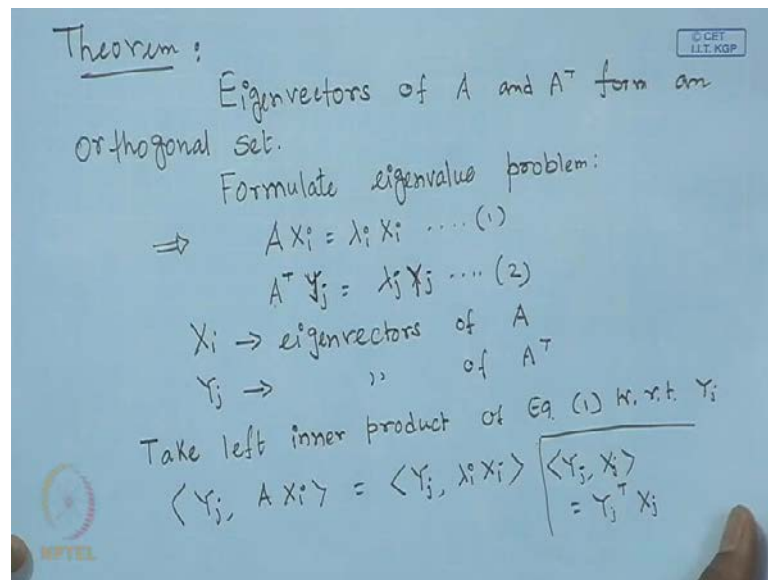 Theorem :
© CET
I.I.T. KGP
Eigenvectors of A and Aᵀ form an
orthogonal set.
Formulate eigenvalue problem:
⇒ A Xi = λi Xi .... (1)
Aᵀ Yj = λj Yj .... (2)
Xi → eigenvectors of A
Yj → ,, of Aᵀ
Take left inner product of Eq. (1) w.r.t. Yj
⟨Yj, A Xi⟩ = ⟨Yj, λi Xi⟩
⟨Yj, Xj⟩
= Yjᵀ Xj
NPTEL